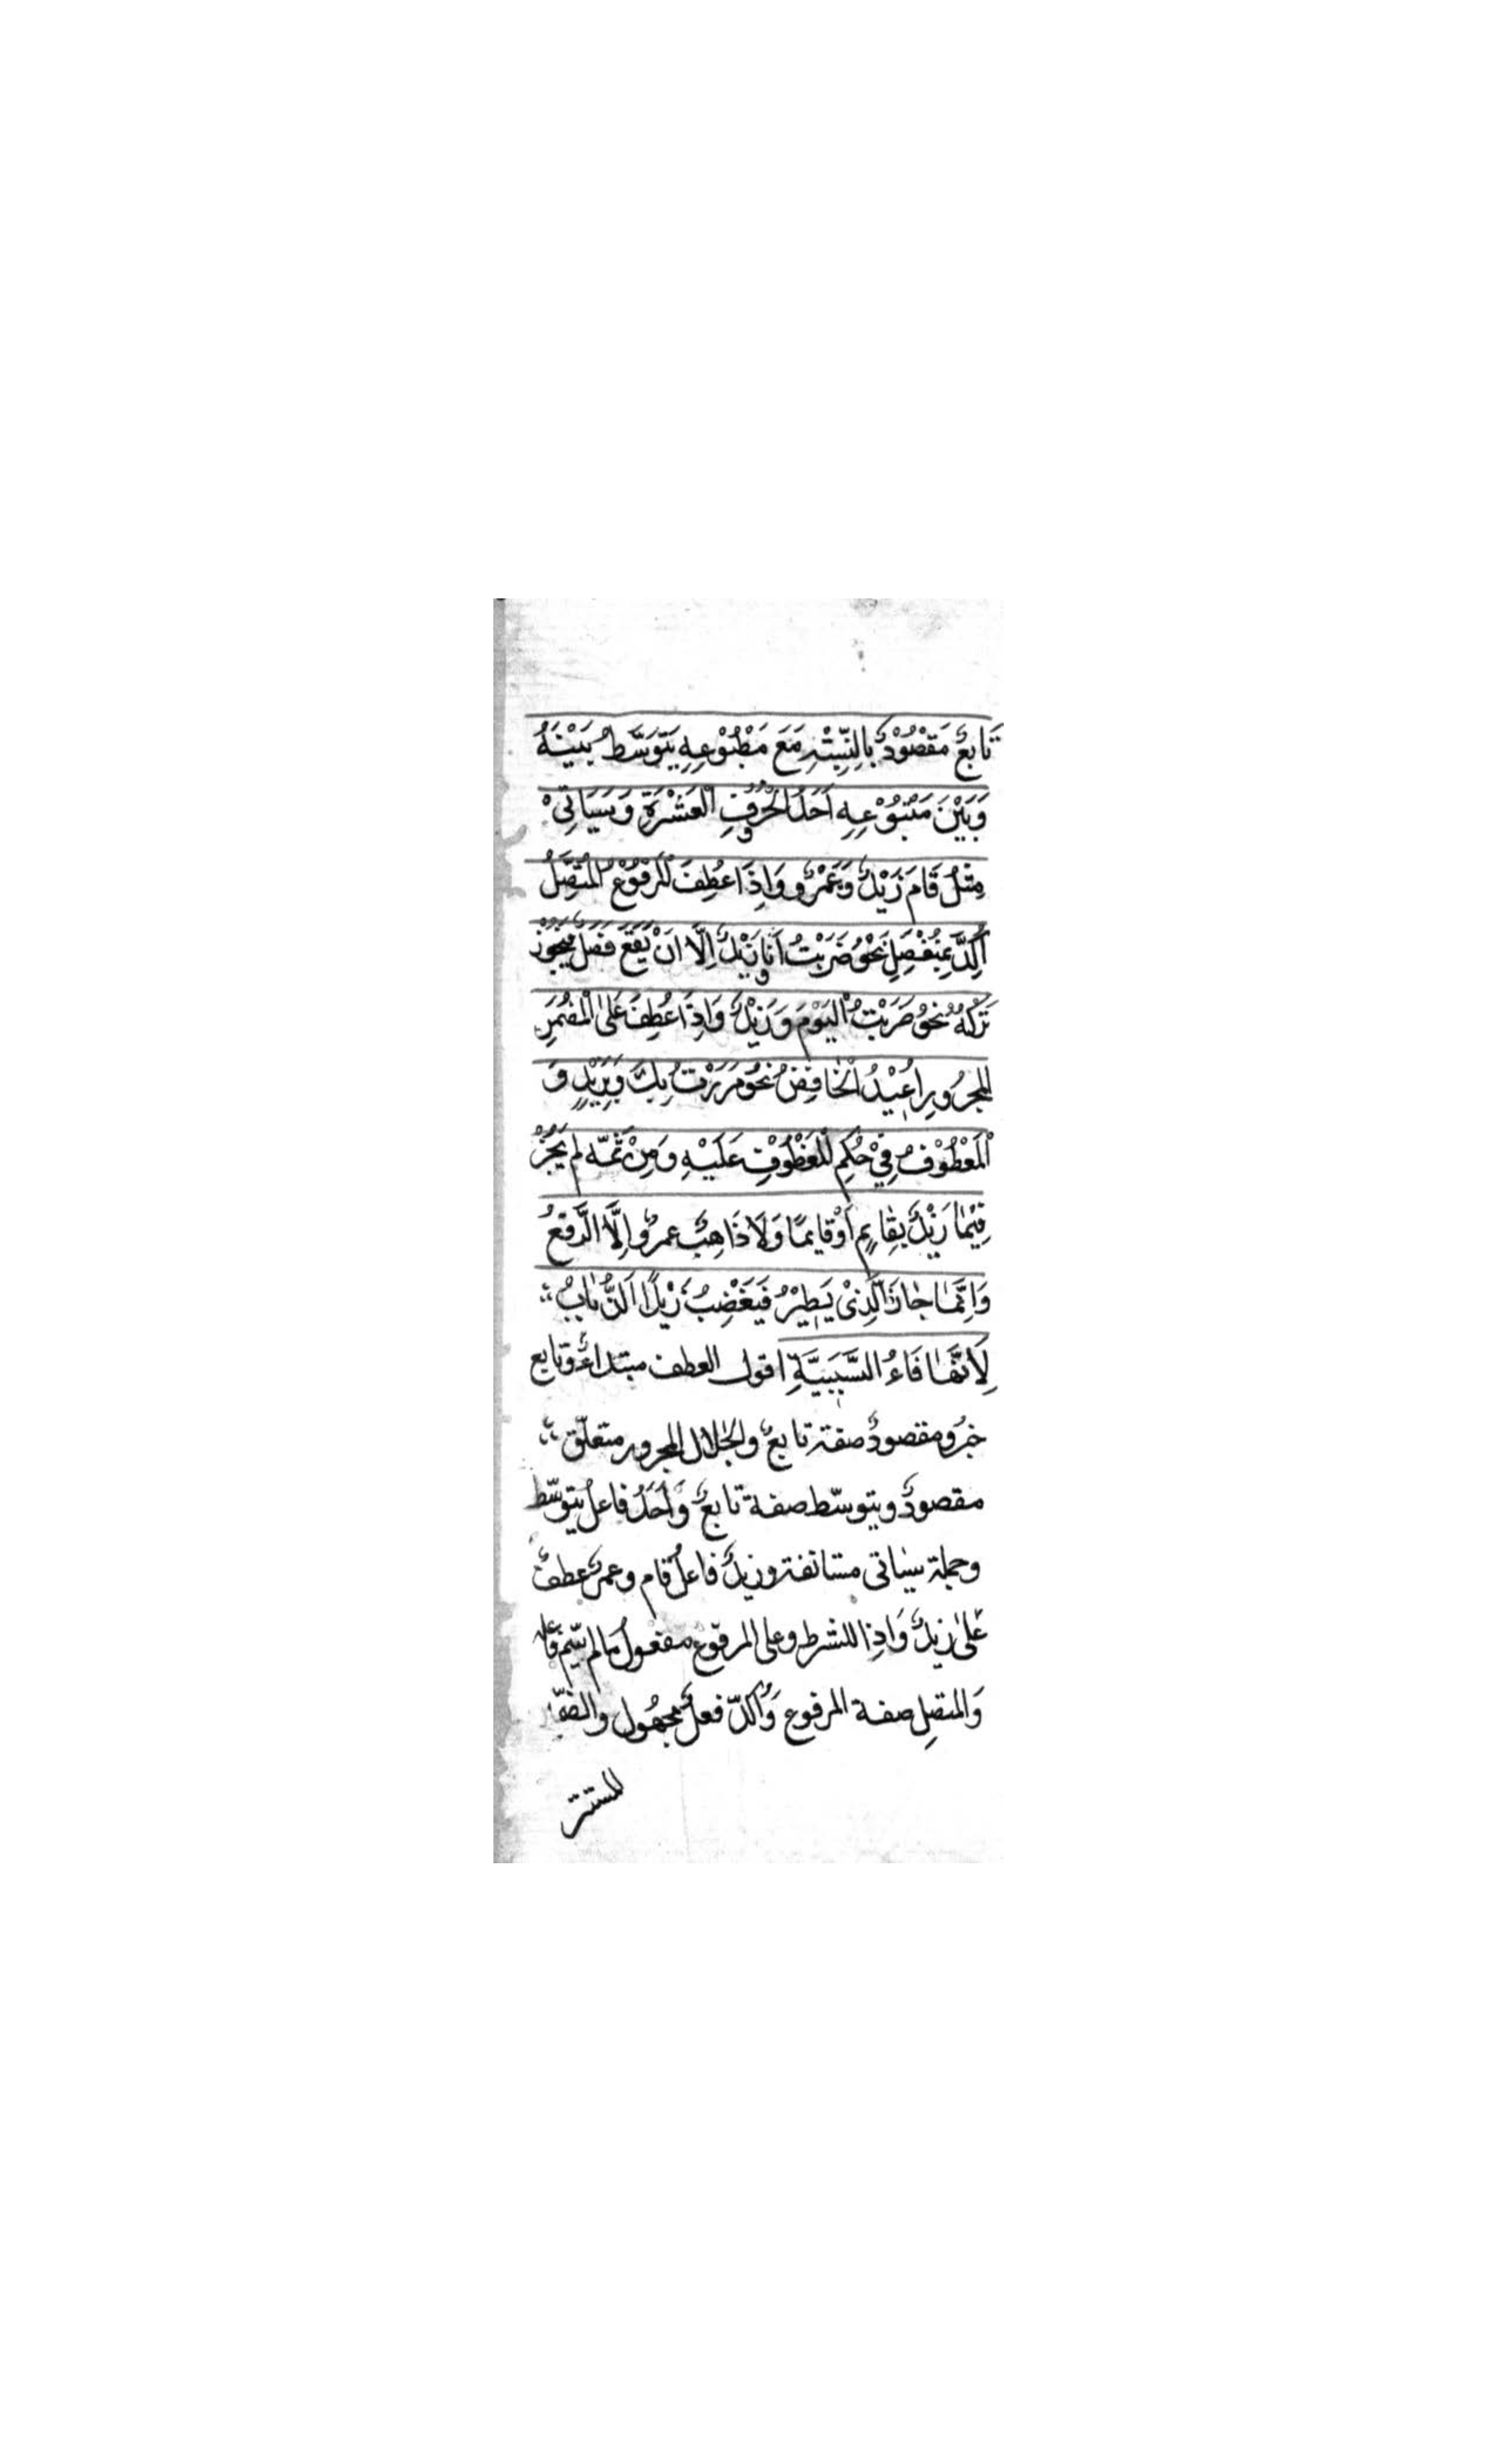 تَابِعٌ مَقْصُوْدٌ بِالنِّسْبَةِ مَعَ مَطْبُوْعِهِ يَتَوَسَّطُ بَيْنَهُ
وَبَيْنَ مَتْبُوْعِهِ اَحَدُ الْحُرُوْفِ الْعَشْرَةِ وَسَيَاتِىْ
مِثْلُ قَامَ زَيْدٌ وَعَمْرٌو وَاِذَا عُطِفَ الْمَرْفُوْعُ الْمُتَّصِلُ
اُكِّدَ بِمُنْفَصِلٍ نَحْوُ ضَرَبْتُ اَنَا وَزَيْدٌ اِلَّا اَنْ يَقَعَ فَصْلٌ فَيَجُوْزُ
تَرْكُهُ نَحْوُ ضَرَبْتُ الْيَوْمَ وَزَيْدٌ وَاِذَا عُطِفَ عَلَى الْمُضْمَرِ
الْمَجْرُورِ اُعِيْدُ الْخَافِضُ نَحْوُ مَرَرْتُ بِكَ وَبِزَيْدٍ وَ
الْمَعْطُوْفُ فِيْ حُكْمِ الْمَعْطُوْفِ عَلَيْهِ وَمِنْ ثَمَّه لم يَجُزْ
فِيْمَا زَيْدٌ بِقَايِمٍ اَوْ قَايِمًا وَلَا ذَاهِبٌ عمرٌو اِلَّا الرَّفْعُ
وَاِنَّمَا جَازَ الَّذِىْ يَطِيْرُ فَيَغْضِبُ زَيْدًا اَلذُّبَابُ
لِاَنَّهَا فَاءُ السَّبَبِيَّةِ اقول العطف مبتداءٌ وتابع
خبرٌ ومقصودٌ صفة تابعٌ والجار المجرور متعلّق
مقصودٌ ويتوسّط صفة تابعٌ وَاَحَدُ فاعلُ يتوسّط
وجملة سياتى مستانفة وزيدٌ فاعلُ قام وعمرٌ عطفٌ
عَلىٰ زيدٌ وَاذِا للشرط وعلى المرفوع مفعولُ مالم يسّم فاعله
وَالمتصِل صفة المرفوع وَاُكدّ فعلٌ مجهُول والضمّير
المستتر